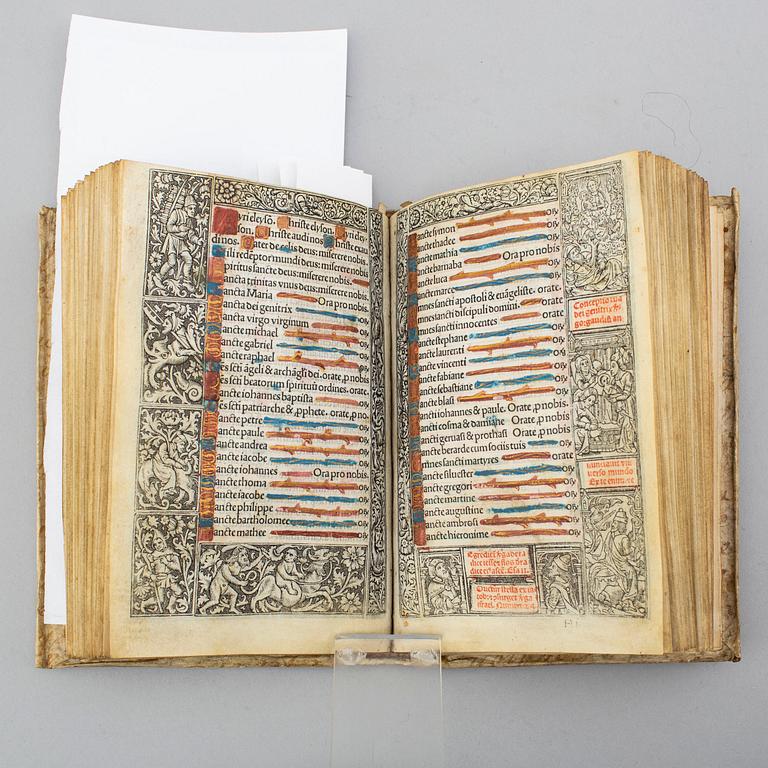 Kyrieleyson. Christe eleyson. Kyrieley
son. Christe audi nos. Christe exau
di nos. Pater de celis deus: miserere nobis.
Fili redemptor mundi deus: miserere nobis.
Spiritus sancte deus: miserere nobis.
Sancta trinitas vnus deus: miserere nobis.
Sancta Maria Ora pro nobis.
Sancta dei genitrix oꝛ
Sancta virgo virginum oꝛ
Sancte michael oꝛ
Sancte gabriel oꝛ
Sancte raphael oꝛ
Oes scti ãgeli & archãgeli dei. orate, p nobis
Oes scti beatorum spirituũ ordines. orate.
Sancte iohannes baptista oꝛ
Oes scti patriarche & ,pphete. orate, p nos.
Sancte petre oꝛ
Sancte paule oꝛ
Sancte andrea oꝛ
Sancte iacobe oꝛ
Sancte iohannes Ora pro nobis.
Sancte thoma oꝛ
Sancte iacobe oꝛ
Sancte philippe oꝛ
Sancte bartholomee oꝛ
Sancte mathee oꝛ
Sancte symon oꝛ
Sancte thadee oꝛ
Sancte mathia oꝛ
Sancte barnaba Ora pro nobis
Sancte luca oꝛ
Sancte marce oꝛ
Omnes sancti apostoli & euãgeliste. orate.
Omnes sancti discipuli domini. orate
Omnes sancti innocentes orate
Sancte stephane oꝛ
Sancte laurenti oꝛ
Sancte vincenti oꝛ
Sancte fabiane oꝛ
Sancte sebastiane oꝛ
Sancte blasi oꝛ
Sancti iohannes & paule. Orate, p nobis
Sancti cosma & damiane Orate, p nobis
Sancti geruasi & prothasi Orate, p nobis
Sancte berarde cum sociis tuis oꝛ
Omnes sancti martyres orate.
Sancte siluester oꝛ
Sancte gregori oꝛ
Sancte martine oꝛ
Sancte augustine oꝛ
Sancte ambrosi oꝛ
Sancte hieronime oꝛ
Conceptio tua
dei genitrix
gaudiũ an
nunciauit vni
verso mundo
Ex te enim
Egredietur virga de ra
dice iesse
dice ascen. Esa 11.
Orietur stella ex ia
cob: & cõsurget virga
israel. Numeri 24.